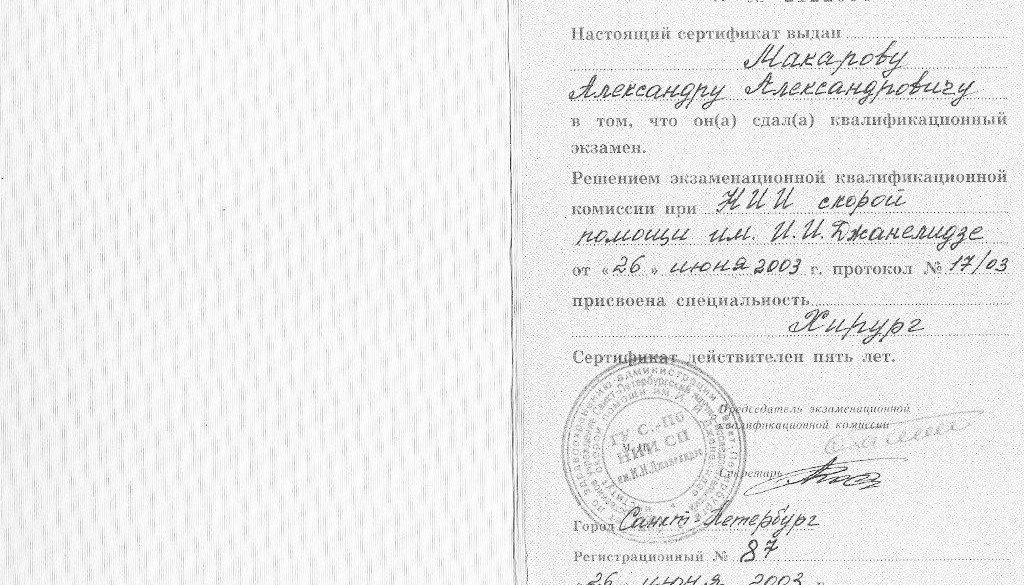 Настоящий сертификат выдан
Макарову
Александру Александровичу
в том, что он(а) сдал(а) квалификационный
экзамен.
Решением экзаменационной квалификационной
комиссии при НИИ скорой
помощи им. И.И. Джанелидзе
от «26» июня 2003 г. протокол № 17/03
присвоена специальность
Хирург
Сертификат действителен пять лет.
Председатель экзаменационной
квалификационной комиссии
ГУ С.-Пб
НИИ СП
им.И.И.Джанелидзе
Секретарь
Город Санкт-Петербург
Регистрационный № 87
«26» июня 2003 г.